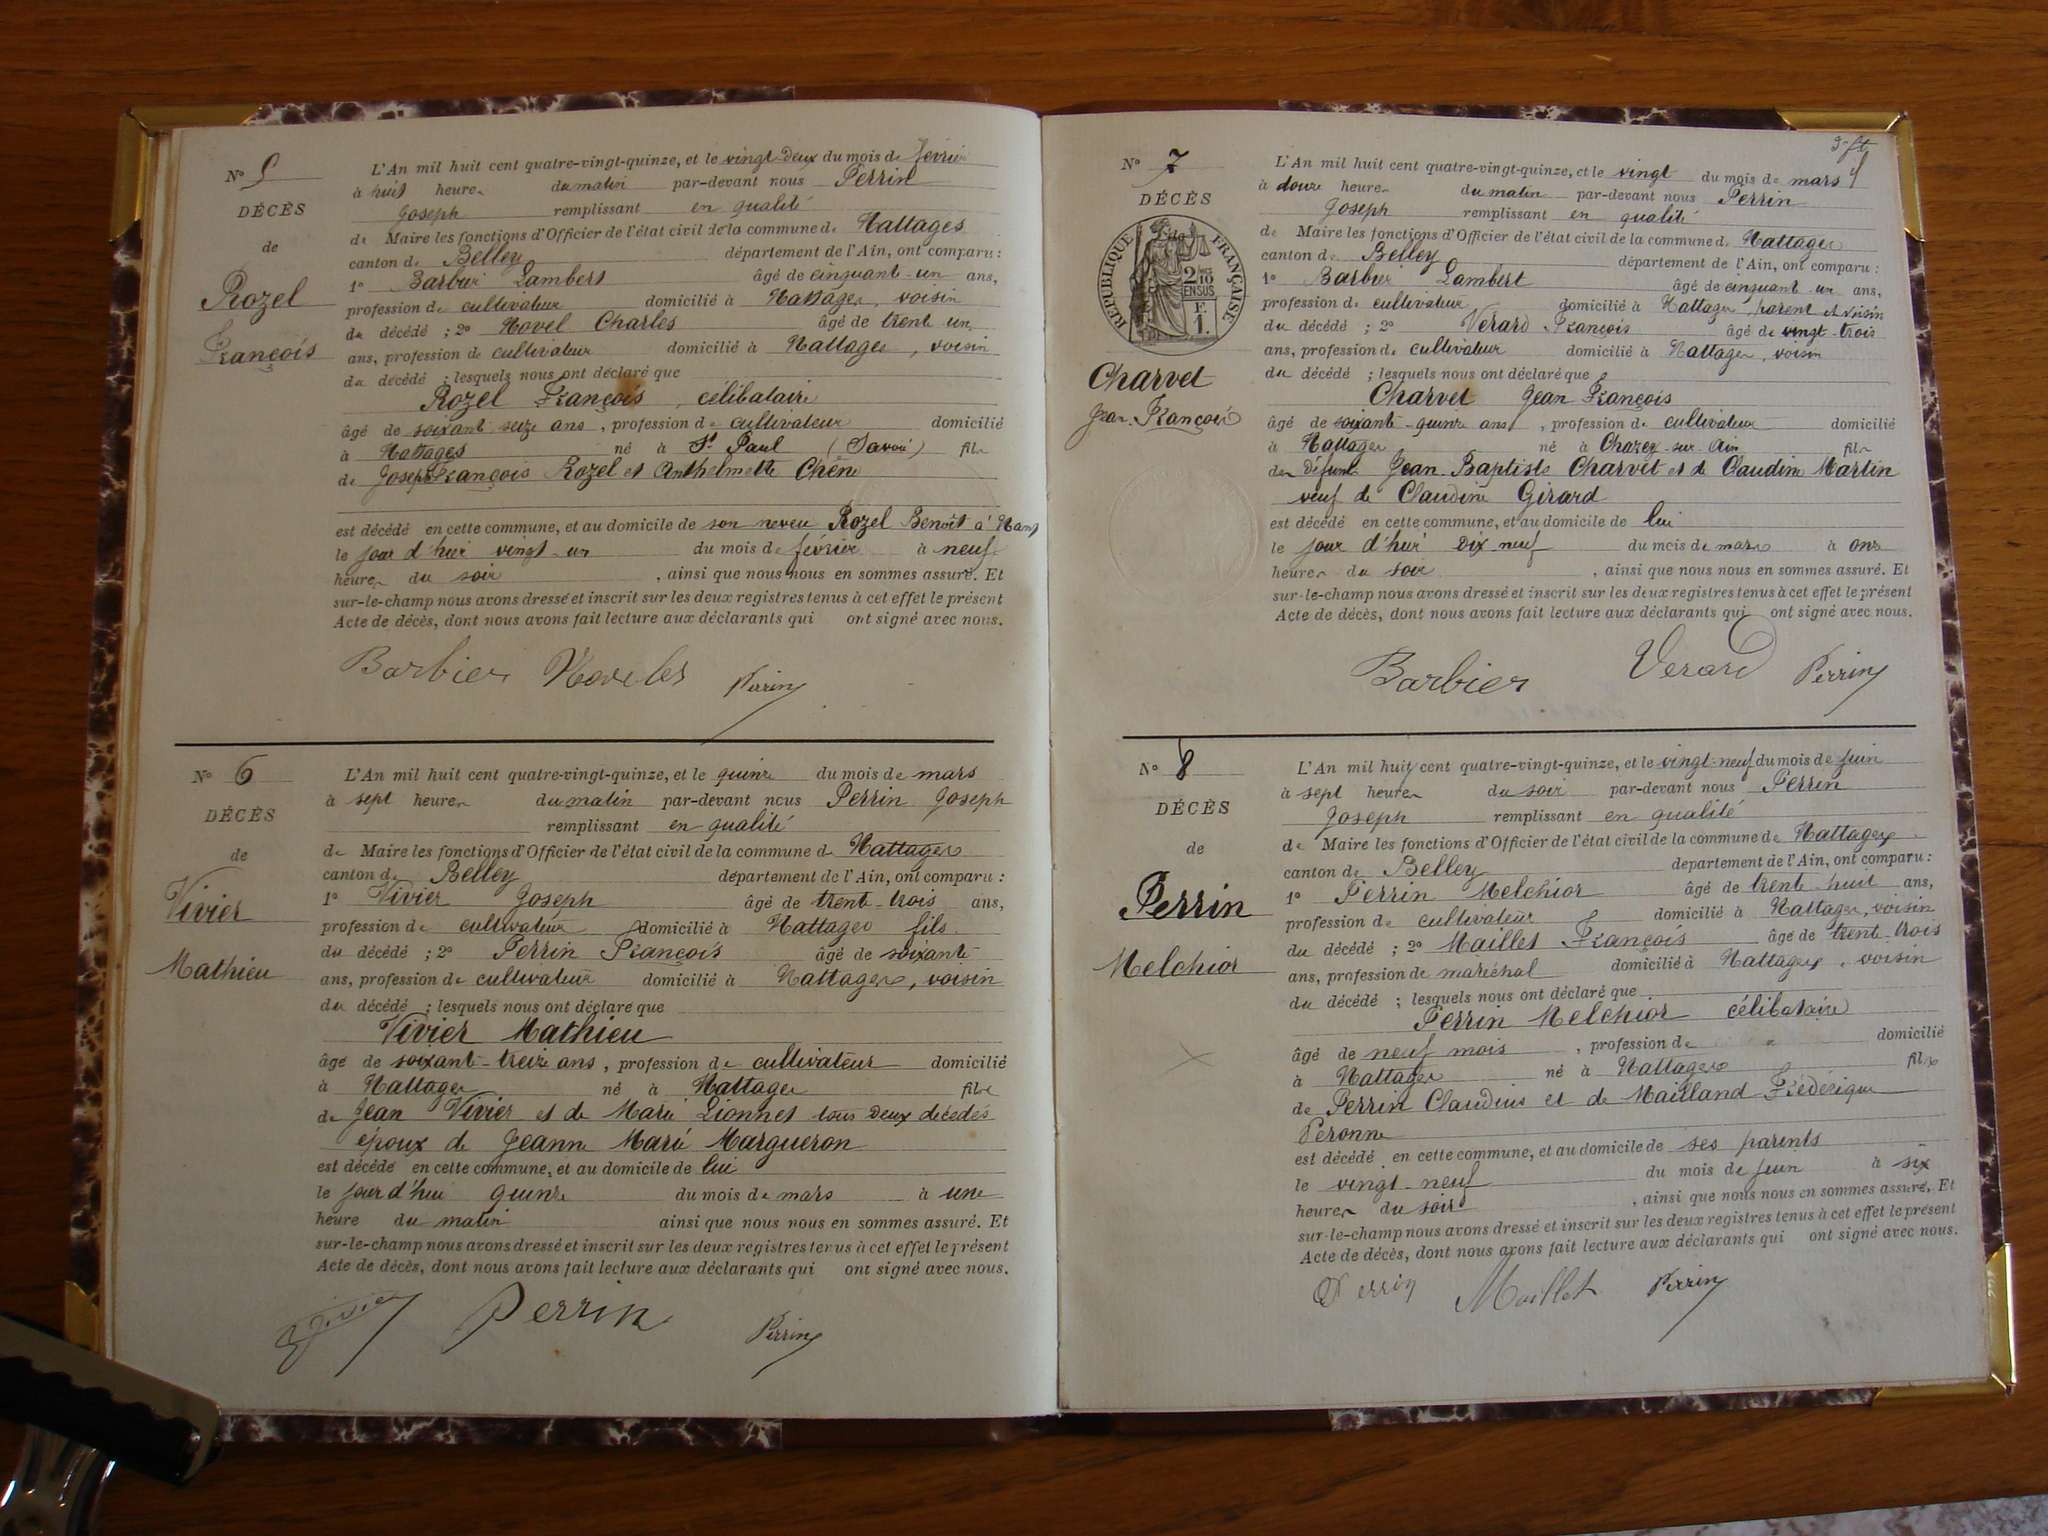 N° 5
DÉCÈS
de
Rozel
François
L'An mil huit cent quatre-vingt-quinze, et le vingt-deux du mois de février
à huit heures du matin par-devant nous Perrin
Joseph remplissant en qualité
de Maire les fonctions d'Officier de l'état civil de la commune de Nattages
canton de Belley département de l'Ain, ont comparu :
1° Barbier Lambert âgé de cinquante-un ans,
profession de cultivateur domicilié à Nattages, voisin
du décédé ; 2° Novel Charles âgé de trente un
ans, profession de cultivateur domicilié à Nattages, voisin
du décédé ; lesquels nous ont déclaré que
Rozel François, célibataire
âgé de soixante seize ans, profession de cultivateur domicilié
à Nattages né à St Paul (Savoie) fils
de Joseph François Rozel et Anthelmette Chêne
est décédé en cette commune, et au domicile de son neveu Rozel Benoît à
le jour d'hier vingt-un du mois de février à neuf
heures du soir, ainsi que nous nous en sommes assuré. Et
sur-le-champ nous avons dressé et inscrit sur les deux registres tenus à cet effet le présent
Acte de décès, dont nous avons fait lecture aux déclarants qui ont signé avec nous.
Barbier Perrin
N° 6
DÉCÈS
de
Vivier
Mathieu
L'An mil huit cent quatre-vingt-quinze, et le quinze du mois de mars
à sept heures du matin par-devant nous Perrin Joseph
remplissant en qualité
de Maire les fonctions d'Officier de l'état civil de la commune d Nattages
canton de Belley département de l'Ain, ont comparu :
1° Vivier Joseph âgé de trente-trois ans,
profession de cultivateur domicilié à Nattages fils
du décédé ; 2° Perrin François âgé de soixante
ans, profession de cultivateur domicilié à Nattages, voisin
du décédé ; lesquels nous ont déclaré que
Vivier Mathieu
âgé de soixante-treize ans, profession de cultivateur domicilié
à Nattages né à Nattages fils
de Jean Vivier et de Marie Lionnet tous deux décédés
époux de Jeanne Marie Margueron
est décédé en cette commune, et au domicile de lui
le jour d'hui quinze du mois de mars à une
heure du matin ainsi que nous nous en sommes assuré. Et
sur-le-champ nous avons dressé et inscrit sur les deux registres tenus à cet effet le présent
Acte de décès, dont nous avons fait lecture aux déclarants qui ont signé avec nous.
Perrin Perrin
N° 7
DÉCÈS
RÉPUBLIQUE FRANÇAISE
2/10 EN SUS
F. 1.
Charvet
Jean-François
L'An mil huit cent quatre-vingt-quinze, et le vingt du mois de mars
à douze heures du matin par-devant nous Perrin
Joseph remplissant en qualité
de Maire les fonctions d'Officier de l'état civil de la commune de Nattages
canton de Belley département de l'Ain, ont comparu :
1° Barbier Lambert âgé de cinquante un ans,
profession de cultivateur domicilié à Nattages, parent et voisin
du décédé ; 2° Verard François âgé de vingt-trois
ans, profession de cultivateur domicilié à Nattages, voisin
du décédé ; lesquels nous ont déclaré que
Charvet Jean François
âgé de soixante-quinze ans, profession de cultivateur domicilié
à Nattages né à Chazey-sur-Ain fils
de défunt Jean-Baptiste Charvet et de Claudine Martin
veuf de Claudine Girard
est décédé en cette commune, et au domicile de lui
le jour d'hier dix-neuf du mois de mars à onze
heures du soir, ainsi que nous nous en sommes assuré. Et
sur-le-champ nous avons dressé et inscrit sur les deux registres tenus à cet effet le présent
Acte de décès, dont nous avons fait lecture aux déclarants qui ont signé avec nous.
Barbier Verard Perrin
N° 8
DÉCÈS
de
Perrin
Melchior
L'An mil huit cent quatre-vingt-quinze, et le vingt-neuf du mois de juin
à sept heures du soir par-devant nous Perrin
Joseph remplissant en qualité
de Maire les fonctions d'Officier de l'état civil de la commune de Nattages
canton de Belley département de l'Ain, ont comparu :
1° Perrin Melchior âgé de trente-huit ans,
profession de cultivateur domicilié à Nattages, voisin
du décédé ; 2° Maillet François âgé de trente-trois
ans, profession de maréchal domicilié à Nattages, voisin
du décédé ; lesquels nous ont déclaré que
Perrin Melchior célibataire
âgé de neuf mois, profession de domicilié
à Nattages né à Nattages fils
de Perrin Claudius et de Mailland Frédérique
Peronne
est décédé en cette commune, et au domicile de ses parents
le vingt-neuf du mois de juin à six
heures du soir, ainsi que nous nous en sommes assuré. Et
sur-le-champ nous avons dressé et inscrit sur les deux registres tenus à cet effet le présent
Acte de décès, dont nous avons fait lecture aux déclarants qui ont signé avec nous.
Perrin Maillet Perrin